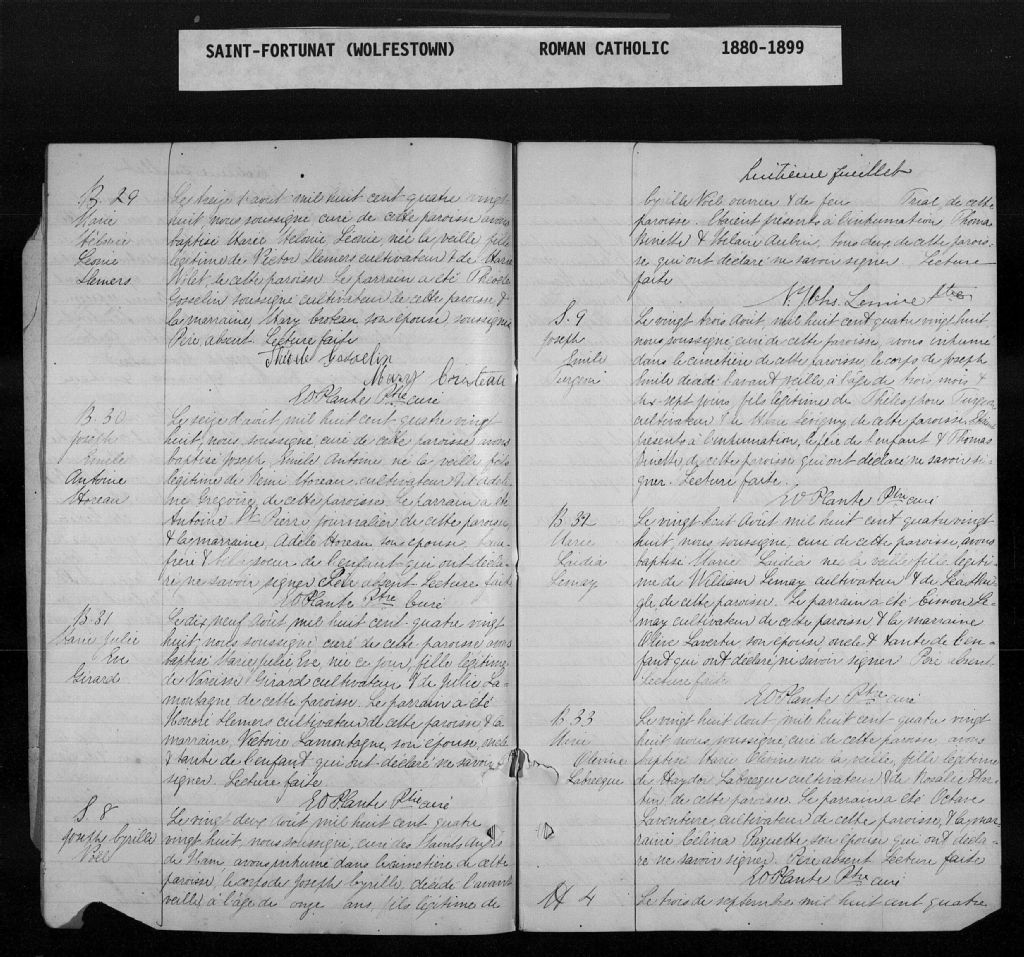 SAINT-FORTUNAT (WOLFESTOWN) ROMAN CATHOLIC 1880-1899
B. 29
Marie
Mélonie
Léonie
Demers
Le seize d'août mil huit cent quatre vingt
huit, nous soussigné curé de cette paroisse avons
baptisé Marie Melonie Léonie, née la veille fille
légitime de Victor Demers cultivateur & de Marie
de cette paroisse. Le parrain a été
Gosselin soussigné cultivateur de cette paroisse &
la marraine, Mary Croteau son épouse soussignée
Père absent. Lecture faite
Gosselin
Mary
E O Plante Ptre curé
B. 30
Joseph
Emile
Antoine
Horeau
Le seize d'août, mil huit cent quatre vingt
huit, nous, soussigné, curé de cette paroisse avons
baptisé Joseph, Emile Antoine, né la veille fils
légitime de Remi Horeau, cultivateur & d'Adeli-
ne Grégoire, de cette paroisse. Le parrain a été
Antoine St Pierre journalier de cette paroisse,
& la marraine, Adèle Horeau son épouse, beau-
frère & soeur de l'enfant qui ont décla-
ré ne savoir signer. Père absent. Lecture faite
E O Plante Ptre Curé
B. 31
Marie Julie
Eve
Girard
Le dix neuf août, mil huit cent quatre vingt
huit, nous soussigné, curé de cette paroisse avons
baptisé Marie Julie Eve née ce jour, fille légitime
de Girard cultivateur & de Julie La-
montagne de cette paroisse. Le parrain a été
Honoré Demers cultivateur de cette paroisse & la
marraine, Victoire Lamontagne, son épouse, oncle
& tante de l'enfant qui ont déclaré ne savoir
signer. Lecture faite
E O Plante Ptre curé
S 8
Joseph Cyrille
Noël
Le vingt deux août, mil huit cent quatre
vingt huit, nous soussigné, curé des Saints Anges
de Ham avons inhumé dans le cimetière de cette
paroisse, le corps de Joseph Cyrille, décédé l'avant
veille, à l'âge de onze ans, fils légitime de
huitième feuillet
Cyrille Noël ouvrier & de feu de cette
paroisse. Etaient présents à l'inhumation Thomas
Binette & Hilaire Aubin, tous deux de cette parois-
se qui ont déclaré ne savoir signer. Lecture
faite
Lemire Ptre
S. 9
Joseph
Emile
Turgeon
Le vingt trois Août, mil huit cent quatre vingt huit,
nous, soussigné, curé de cette paroisse, avons inhumé
dans le cimetière de cette paroisse, le corps de Joseph
Emile décédé l'avant veille à l'âge de trois mois &
dix sept jours, fils légitime de Théléphore Turgeon
cultivateur & de Marie Sévigny de cette paroisse. Etaient
présents à l'inhumation, le père de l'enfant & Thomas
Binette de cette paroisse qui ont déclaré ne savoir si-
gner. Lecture faite.
E O Plante Ptre curé
B. 32
Marie
Laidia
Lemay
Le vingt huit Août mil huit cent quatre vingt
huit, nous, soussigné, curé de cette paroisse, avons
baptisé Marie Laidia née la veille fille légiti-
me de William Lemay cultivateur & de
de cette paroisse. Le parrain a été Le-
may cultivateur de cette paroisse & la marraine
Olive Lavertu son épouse, oncle & tante de l'en-
fant qui ont déclaré ne savoir signer. Père absent
Lecture faite
E O Plante Ptre curé
B 33
Marie
Olevine
Labrecque
Le vingt huit Août mil huit cent quatre vingt
huit nous soussigné, curé de cette paroisse avons
baptisé Marie née la veille, fille légitime
de Labrecque cultivateur & de Rosalie
de cette paroisse. Le parrain a été Octave
Laventure cultivateur de cette paroisse, & la mar-
raine Célina Paquette, son épouse qui ont décla-
ré ne savoir signer. Père absent Lecture faite
E O Plante Ptre curé
M 4
Le trois de septembre mil huit cent quatre